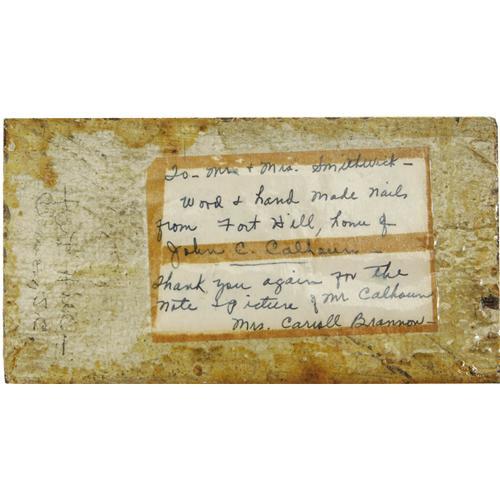 To - Mr. & Mrs. Smithwick -
Wood & hand made nails
from Fort Hill, home of
John C. Calhoun
Thank you again for the
note & picture of Mr Calhoun
Mrs. Carroll Brannon -